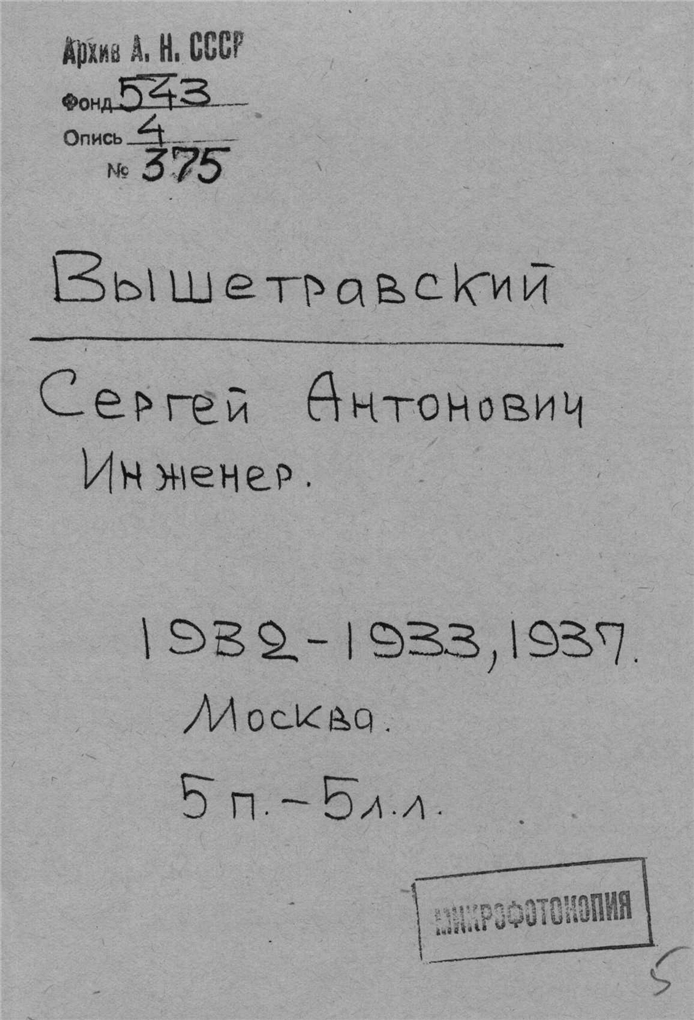 Архив А. Н. СССР
Фонд 543
Опись 4
№ 375
Вышетравский
Сергей Антонович
Инженер.
1932-1933, 1937.
Москва.
5 п. - 5 л.л.
МИКРОФОТОКОПИЯ
5